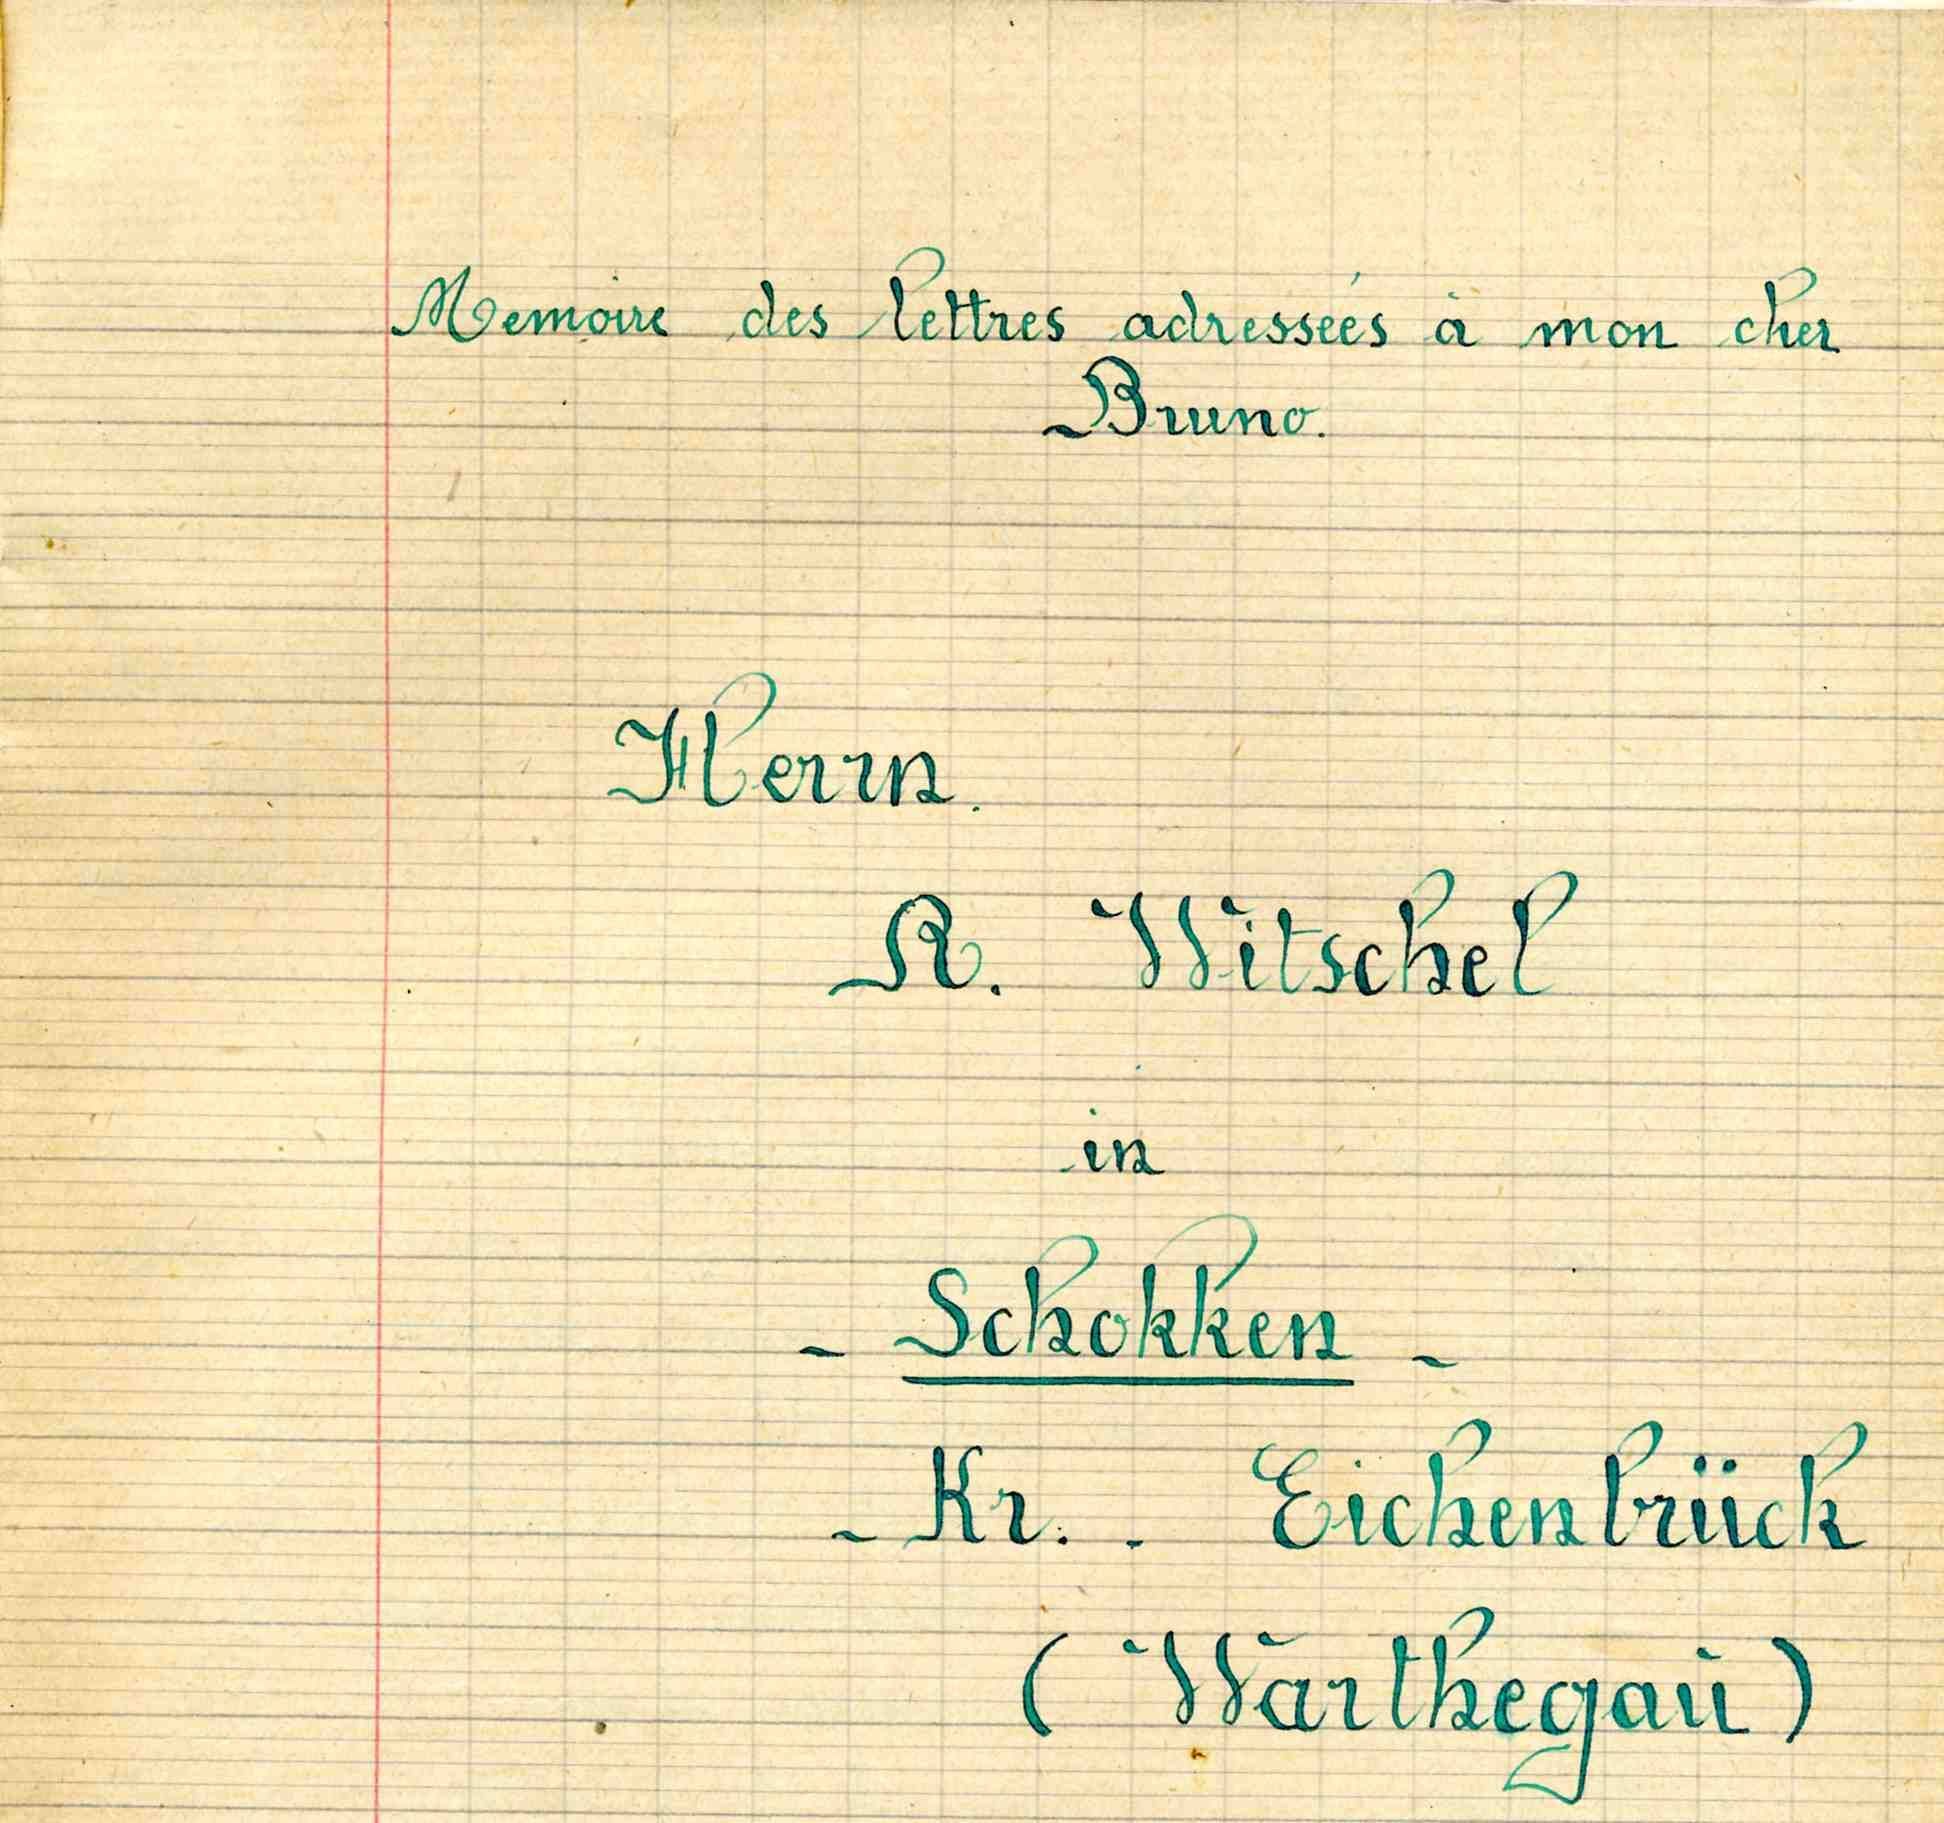 Memoire des lettres adressées à mon cher
Bruno.
Herrn.
R. Witschel
in
- Schokken -
- Kr. - Eichenbrück
( Warthegau )